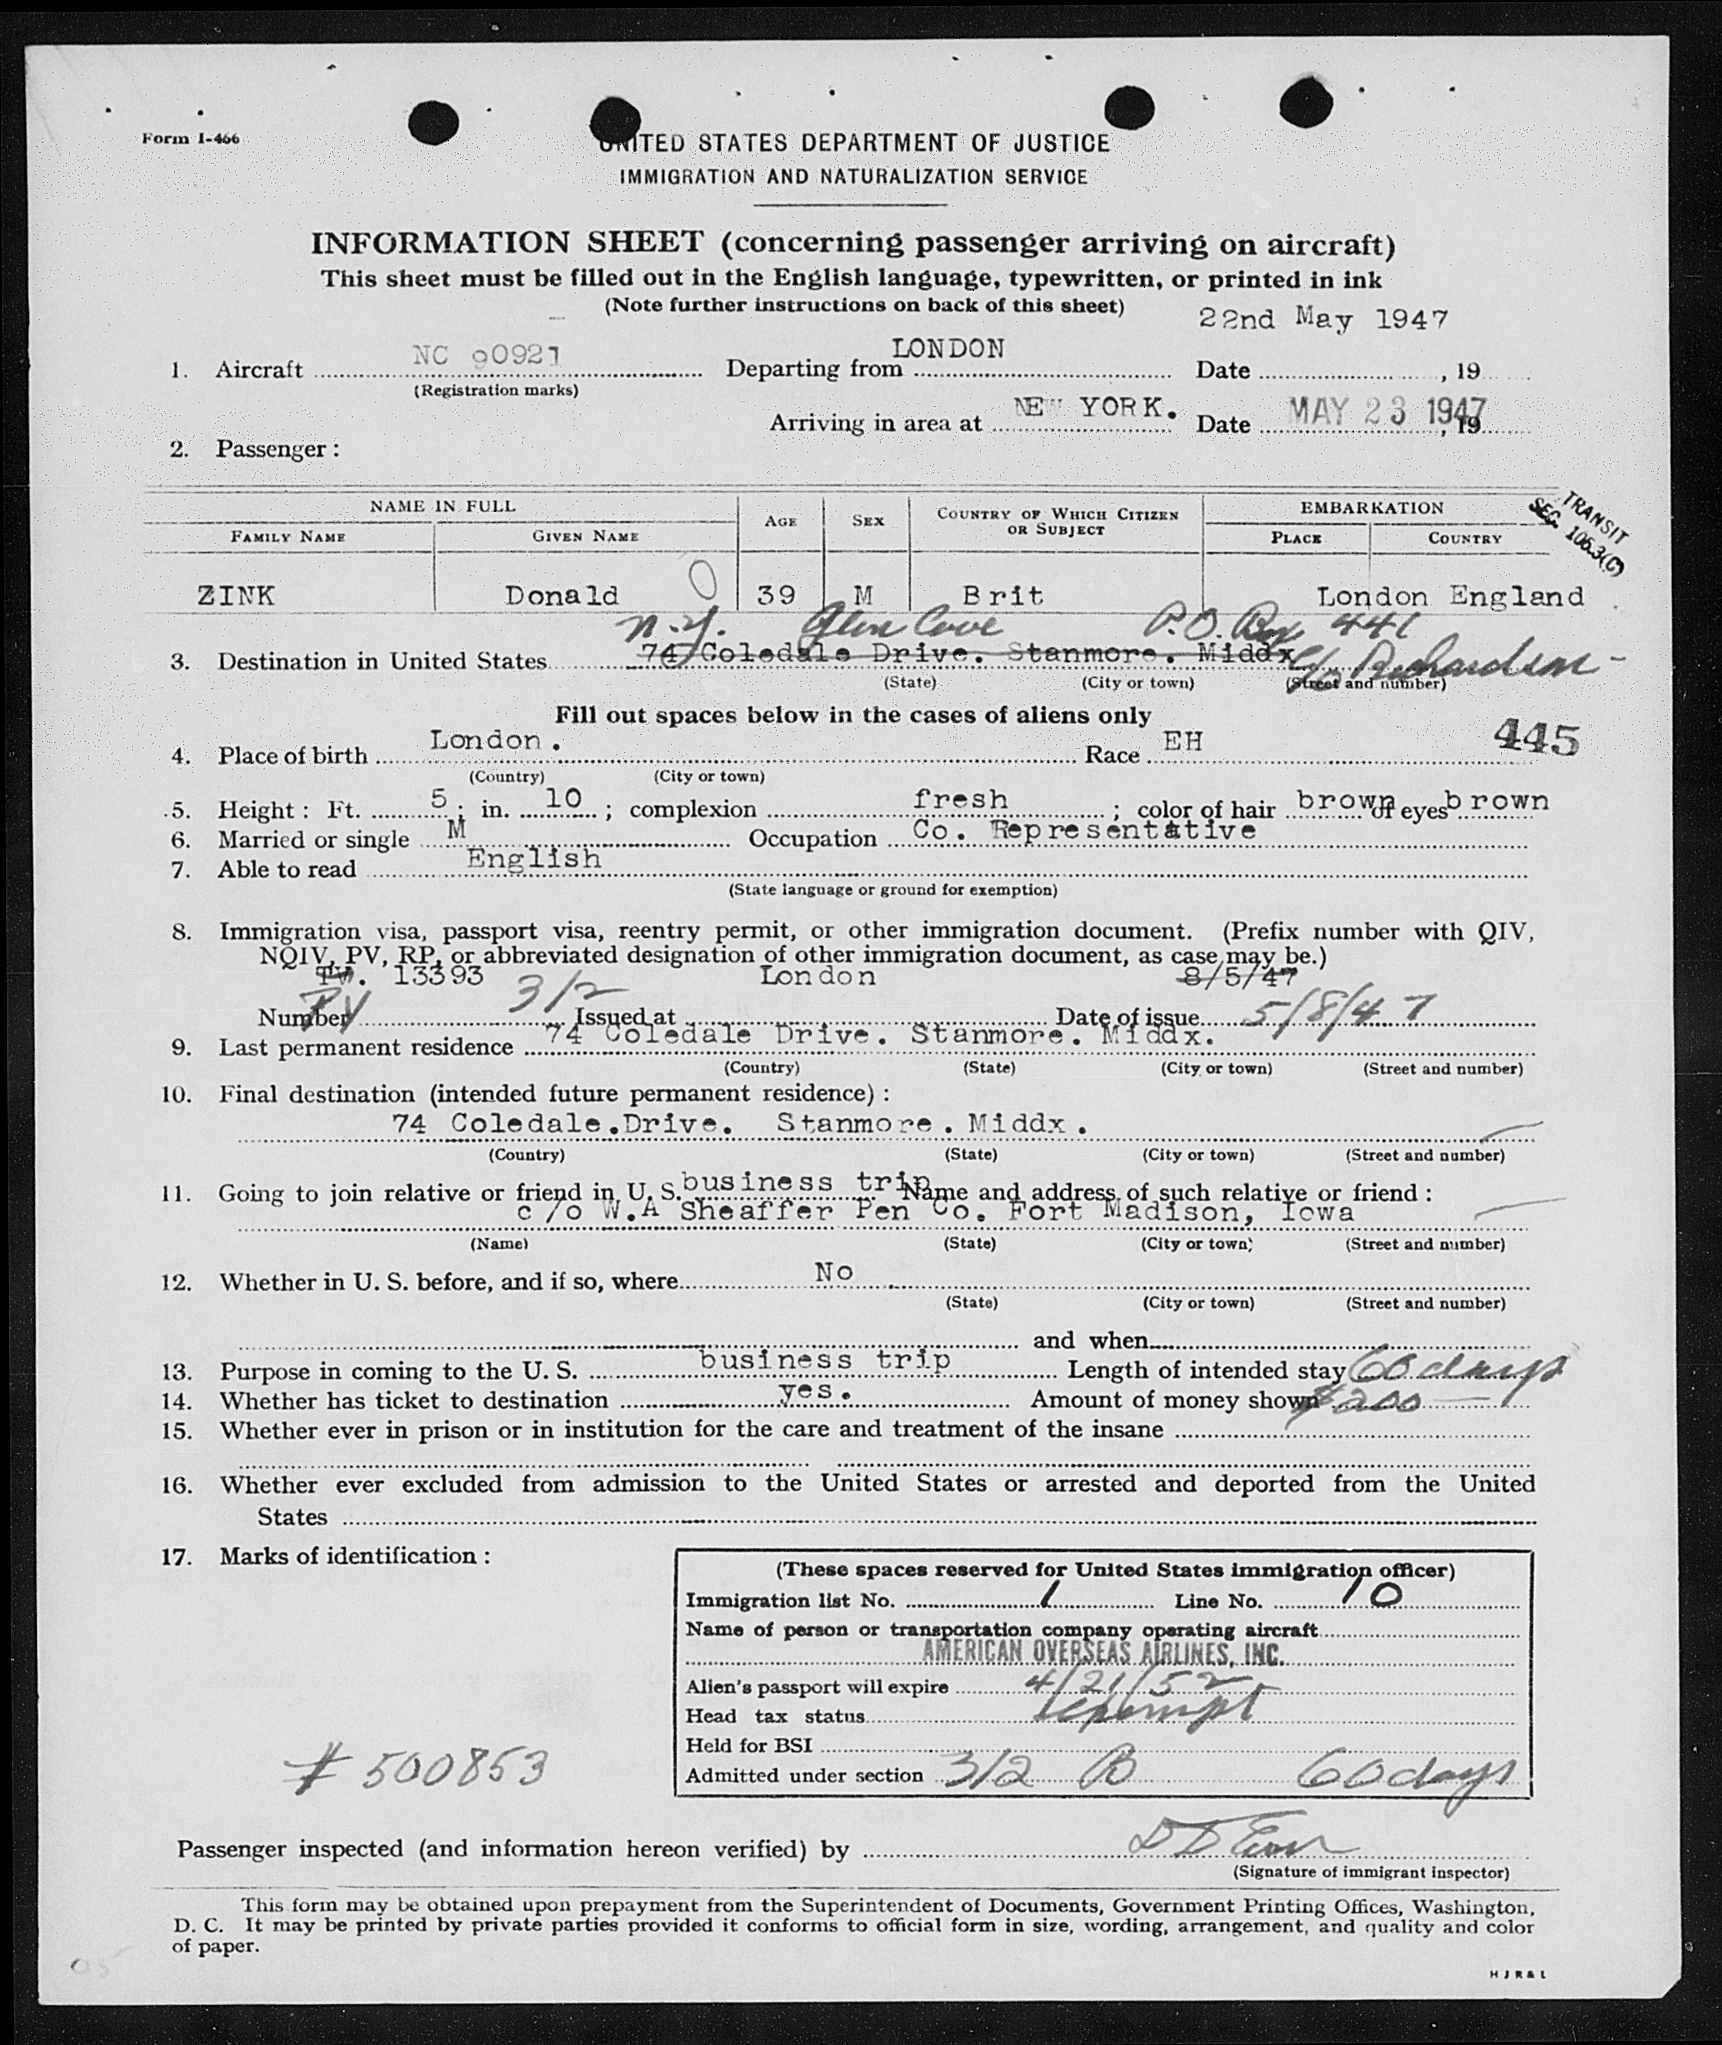 Form I-466
UNITED STATES DEPARTMENT OF JUSTICE
IMMIGRATION AND NATURALIZATION SERVICE
INFORMATION SHEET (concerning passenger arriving on aircraft)
This sheet must be filled out in the English language, typewritten, or printed in ink
(Note further instructions on back of this sheet)
22nd May 1947
1. Aircraft NC 90921 Departing from LONDON Date , 19
(Registration marks)
Arriving in area at NEW YORK. Date MAY 23 1947 , 19
2. Passenger :
NAME IN FULL AGE SEX COUNTRY OF WHICH CITIZEN OR SUBJECT EMBARKATION
FAMILY NAME GIVEN NAME PLACE COUNTRY
TRANSIT
SEC. 106.3(C)
ZINK Donald O 39 M Brit London England
N.Y. Glen Cove P.O. Box 441
3. Destination in United States 74 Coledale Drive. Stanmore. Middx c/o Richardson
(State) (City or town) (Street and number)
Fill out spaces below in the cases of aliens only
445
4. Place of birth London. Race EH
(Country) (City or town)
5. Height : Ft. 5 ; in. 10 ; complexion fresh ; color of hair brown of eyes brown
6. Married or single M Occupation Co. Representative
7. Able to read English
(State language or ground for exemption)
8. Immigration visa, passport visa, reentry permit, or other immigration document. (Prefix number with QIV,
NQIV, PV, RP, or abbreviated designation of other immigration document, as case may be.)
TV. 13393 London 8/5/47
Number PV 3/2 Issued at Date of issue 5/8/47
9. Last permanent residence 74 Coledale Drive. Stanmore. Middx.
(Country) (State) (City or town) (Street and number)
10. Final destination (intended future permanent residence) :
74 Coledale.Drive. Stanmore. Middx.
(Country) (State) (City or town) (Street and number)
11. Going to join relative or friend in U. S. business trip Name and address of such relative or friend :
c/o W.A Sheaffer Pen Co. Fort Madison, Iowa
(Name) (State) (City or town) (Street and number)
12. Whether in U. S. before, and if so, where No
(State) (City or town) (Street and number)
and when
13. Purpose in coming to the U. S. business trip Length of intended stay 60 days
14. Whether has ticket to destination yes. Amount of money shown $200
15. Whether ever in prison or in institution for the care and treatment of the insane
16. Whether ever excluded from admission to the United States or arrested and deported from the United
States
17. Marks of identification :
(These spaces reserved for United States immigration officer)
Immigration list No. 1 Line No. 10
Name of person or transportation company operating aircraft
AMERICAN OVERSEAS AIRLINES, INC.
Alien's passport will expire 4/21/52
Head tax status exempt
Held for BSI
Admitted under section 3/2 B 60 days
# 500853
Passenger inspected (and information hereon verified) by
(Signature of immigrant inspector)
This form may be obtained upon prepayment from the Superintendent of Documents, Government Printing Offices, Washington,
D. C. It may be printed by private parties provided it conforms to official form in size, wording, arrangement, and quality and color
of paper.
H J R & L